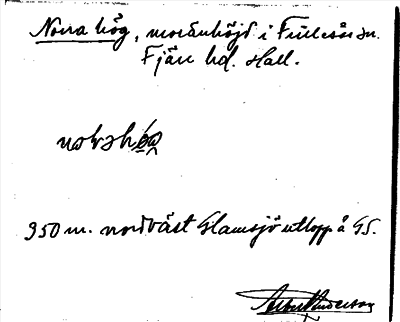 Norra hög, moränhöjd i Frillesås sn.
Fjäre hd. Hall.
950 m. nordväst Stamsjö utlopp å GS.